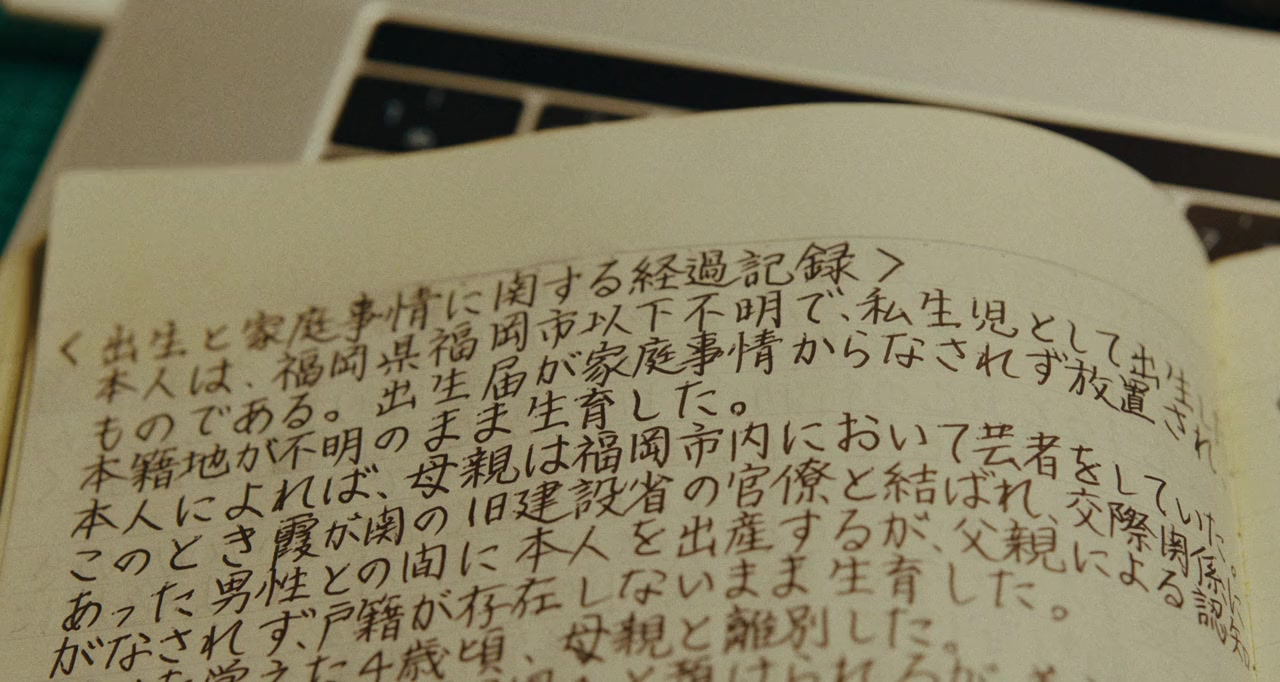 <出生と家庭事情に関する経過記録>
本人は、福岡県福岡市以下不明で、私生児として出生し
ものである。出生届が家庭事情からなされず放置され
本籍地が不明のまま生育した。
本人によれば、母親は福岡市内において芸者をしていた。
このとき霞が関の旧建設省の官僚と結ばれ、交際関係に
あった男性との間に本人を出産するが、父親による認知
がなされず、戸籍が存在しないまま生育した。
4歳頃、母親と離別した。